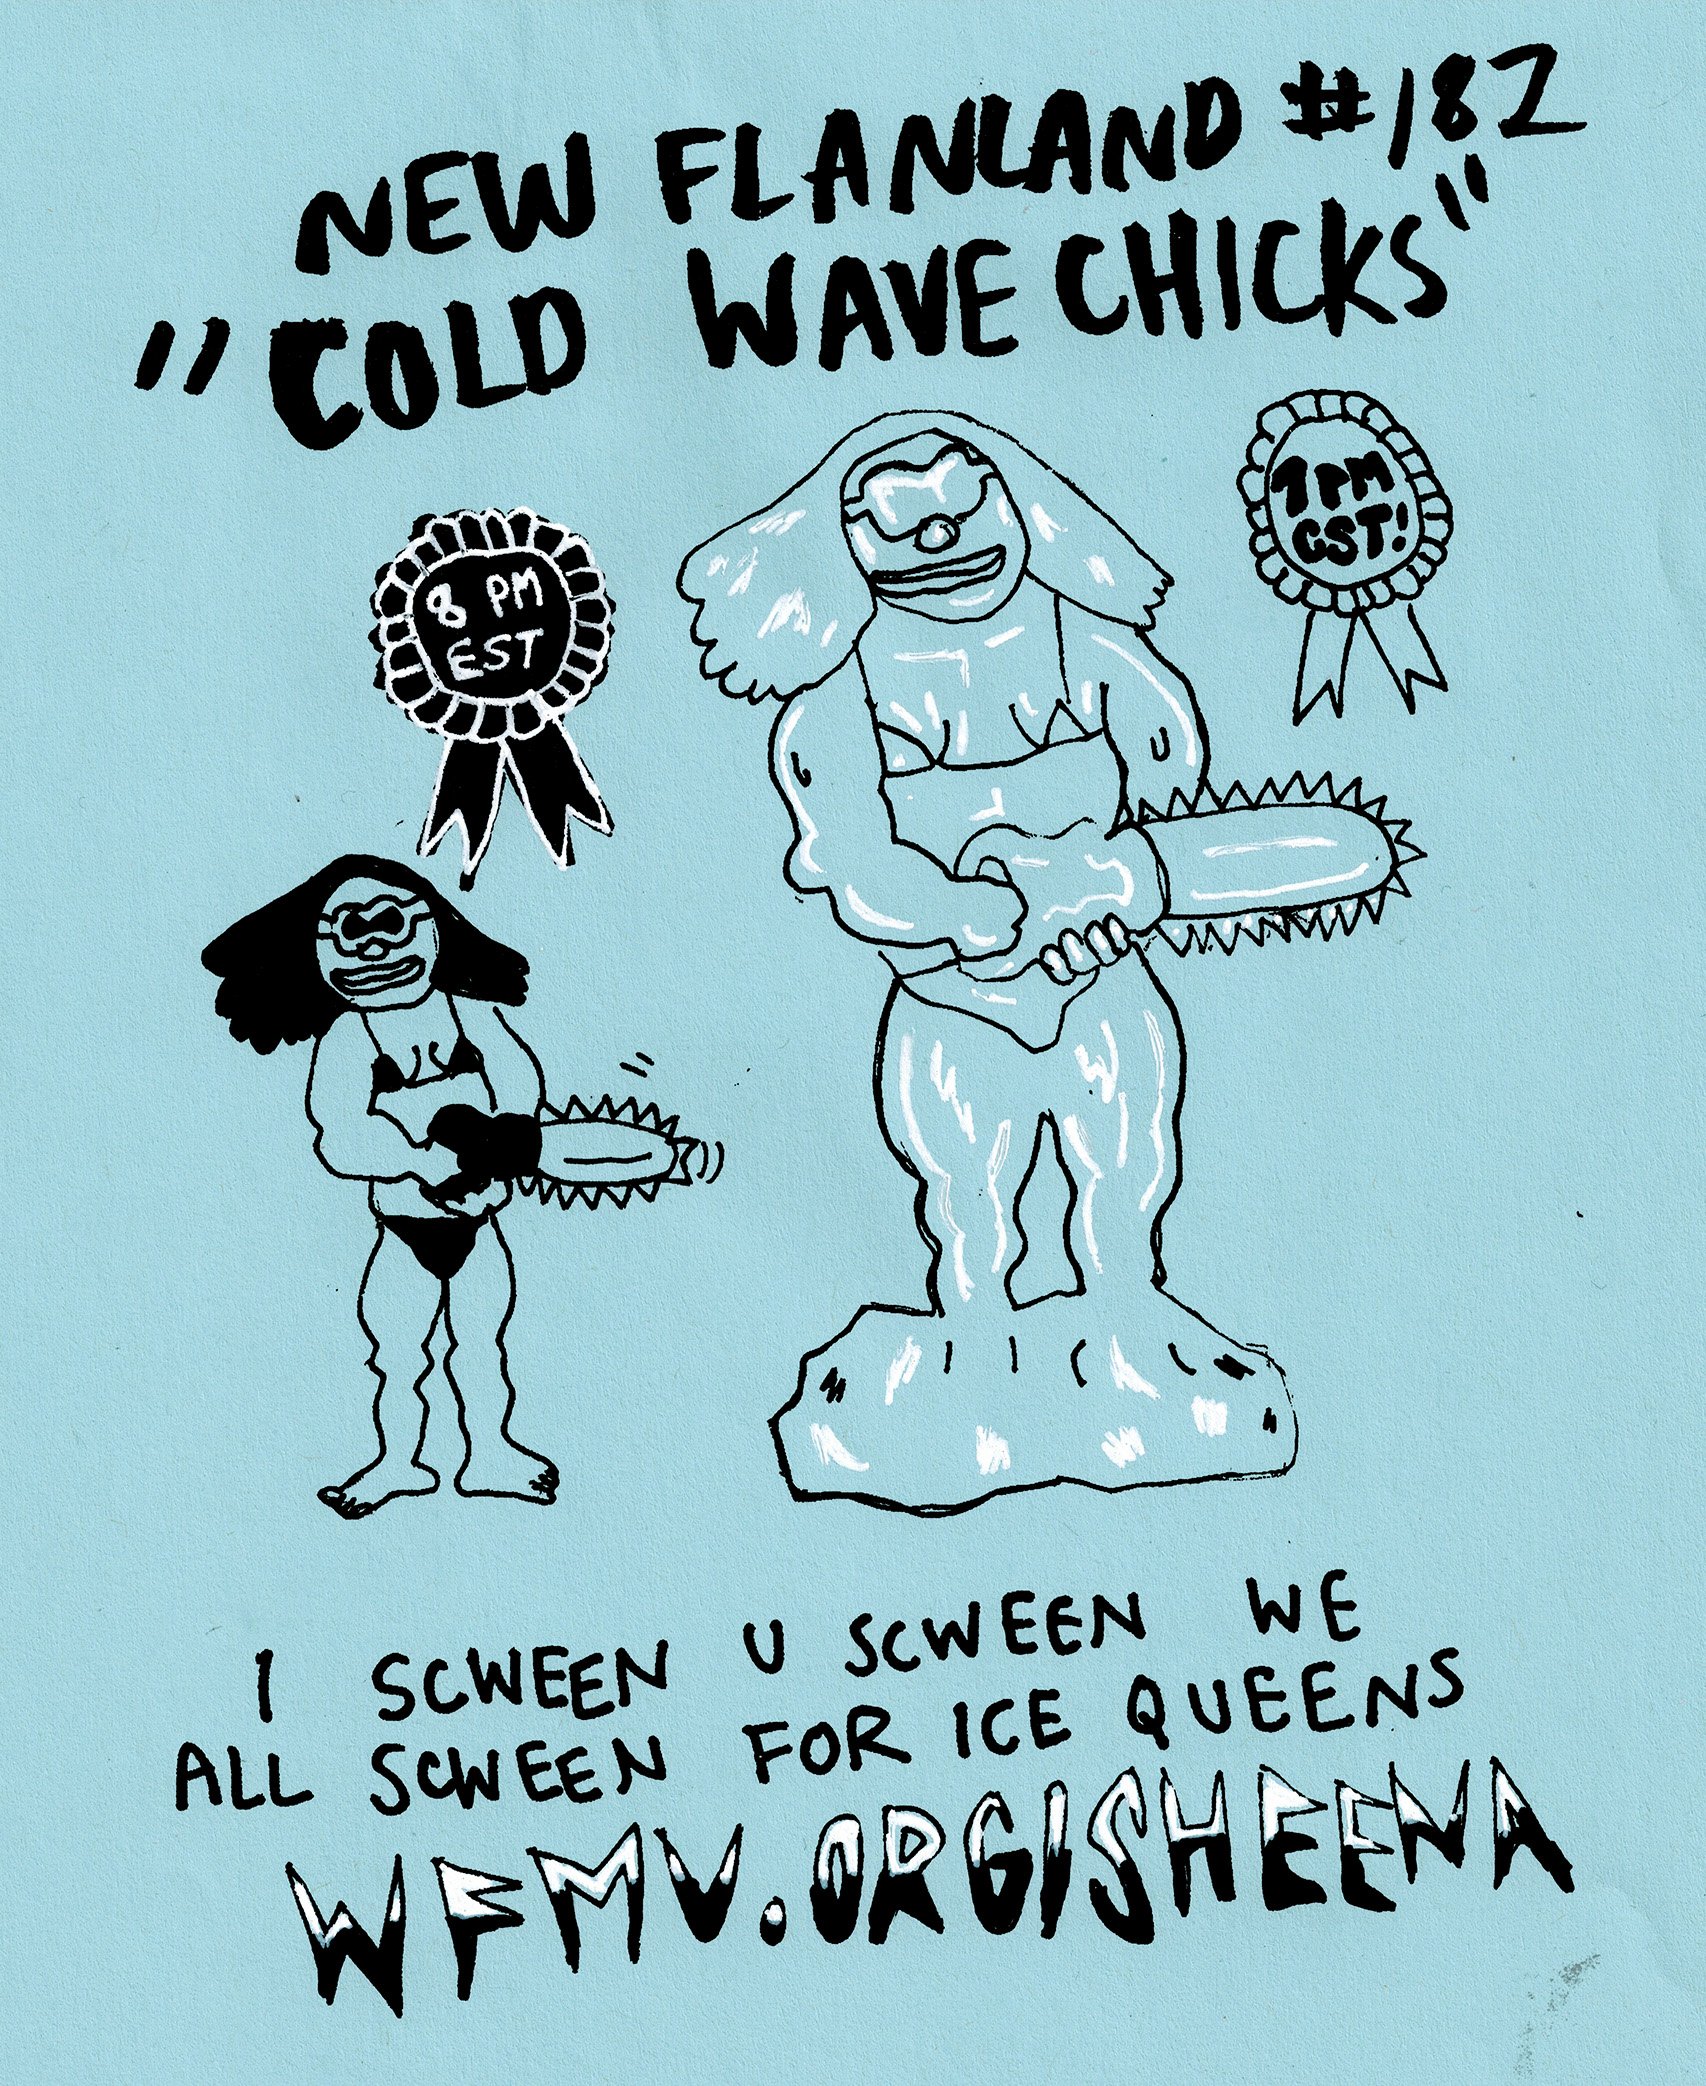 NEW FLANLAND #182
"COLD WAVE CHICKS"
8 PM
EST
7PM
CST!
I SCWEEN U SCWEEN WE
ALL SCWEEN FOR ICE QUEENS
WFMV.ORG/SHEENA